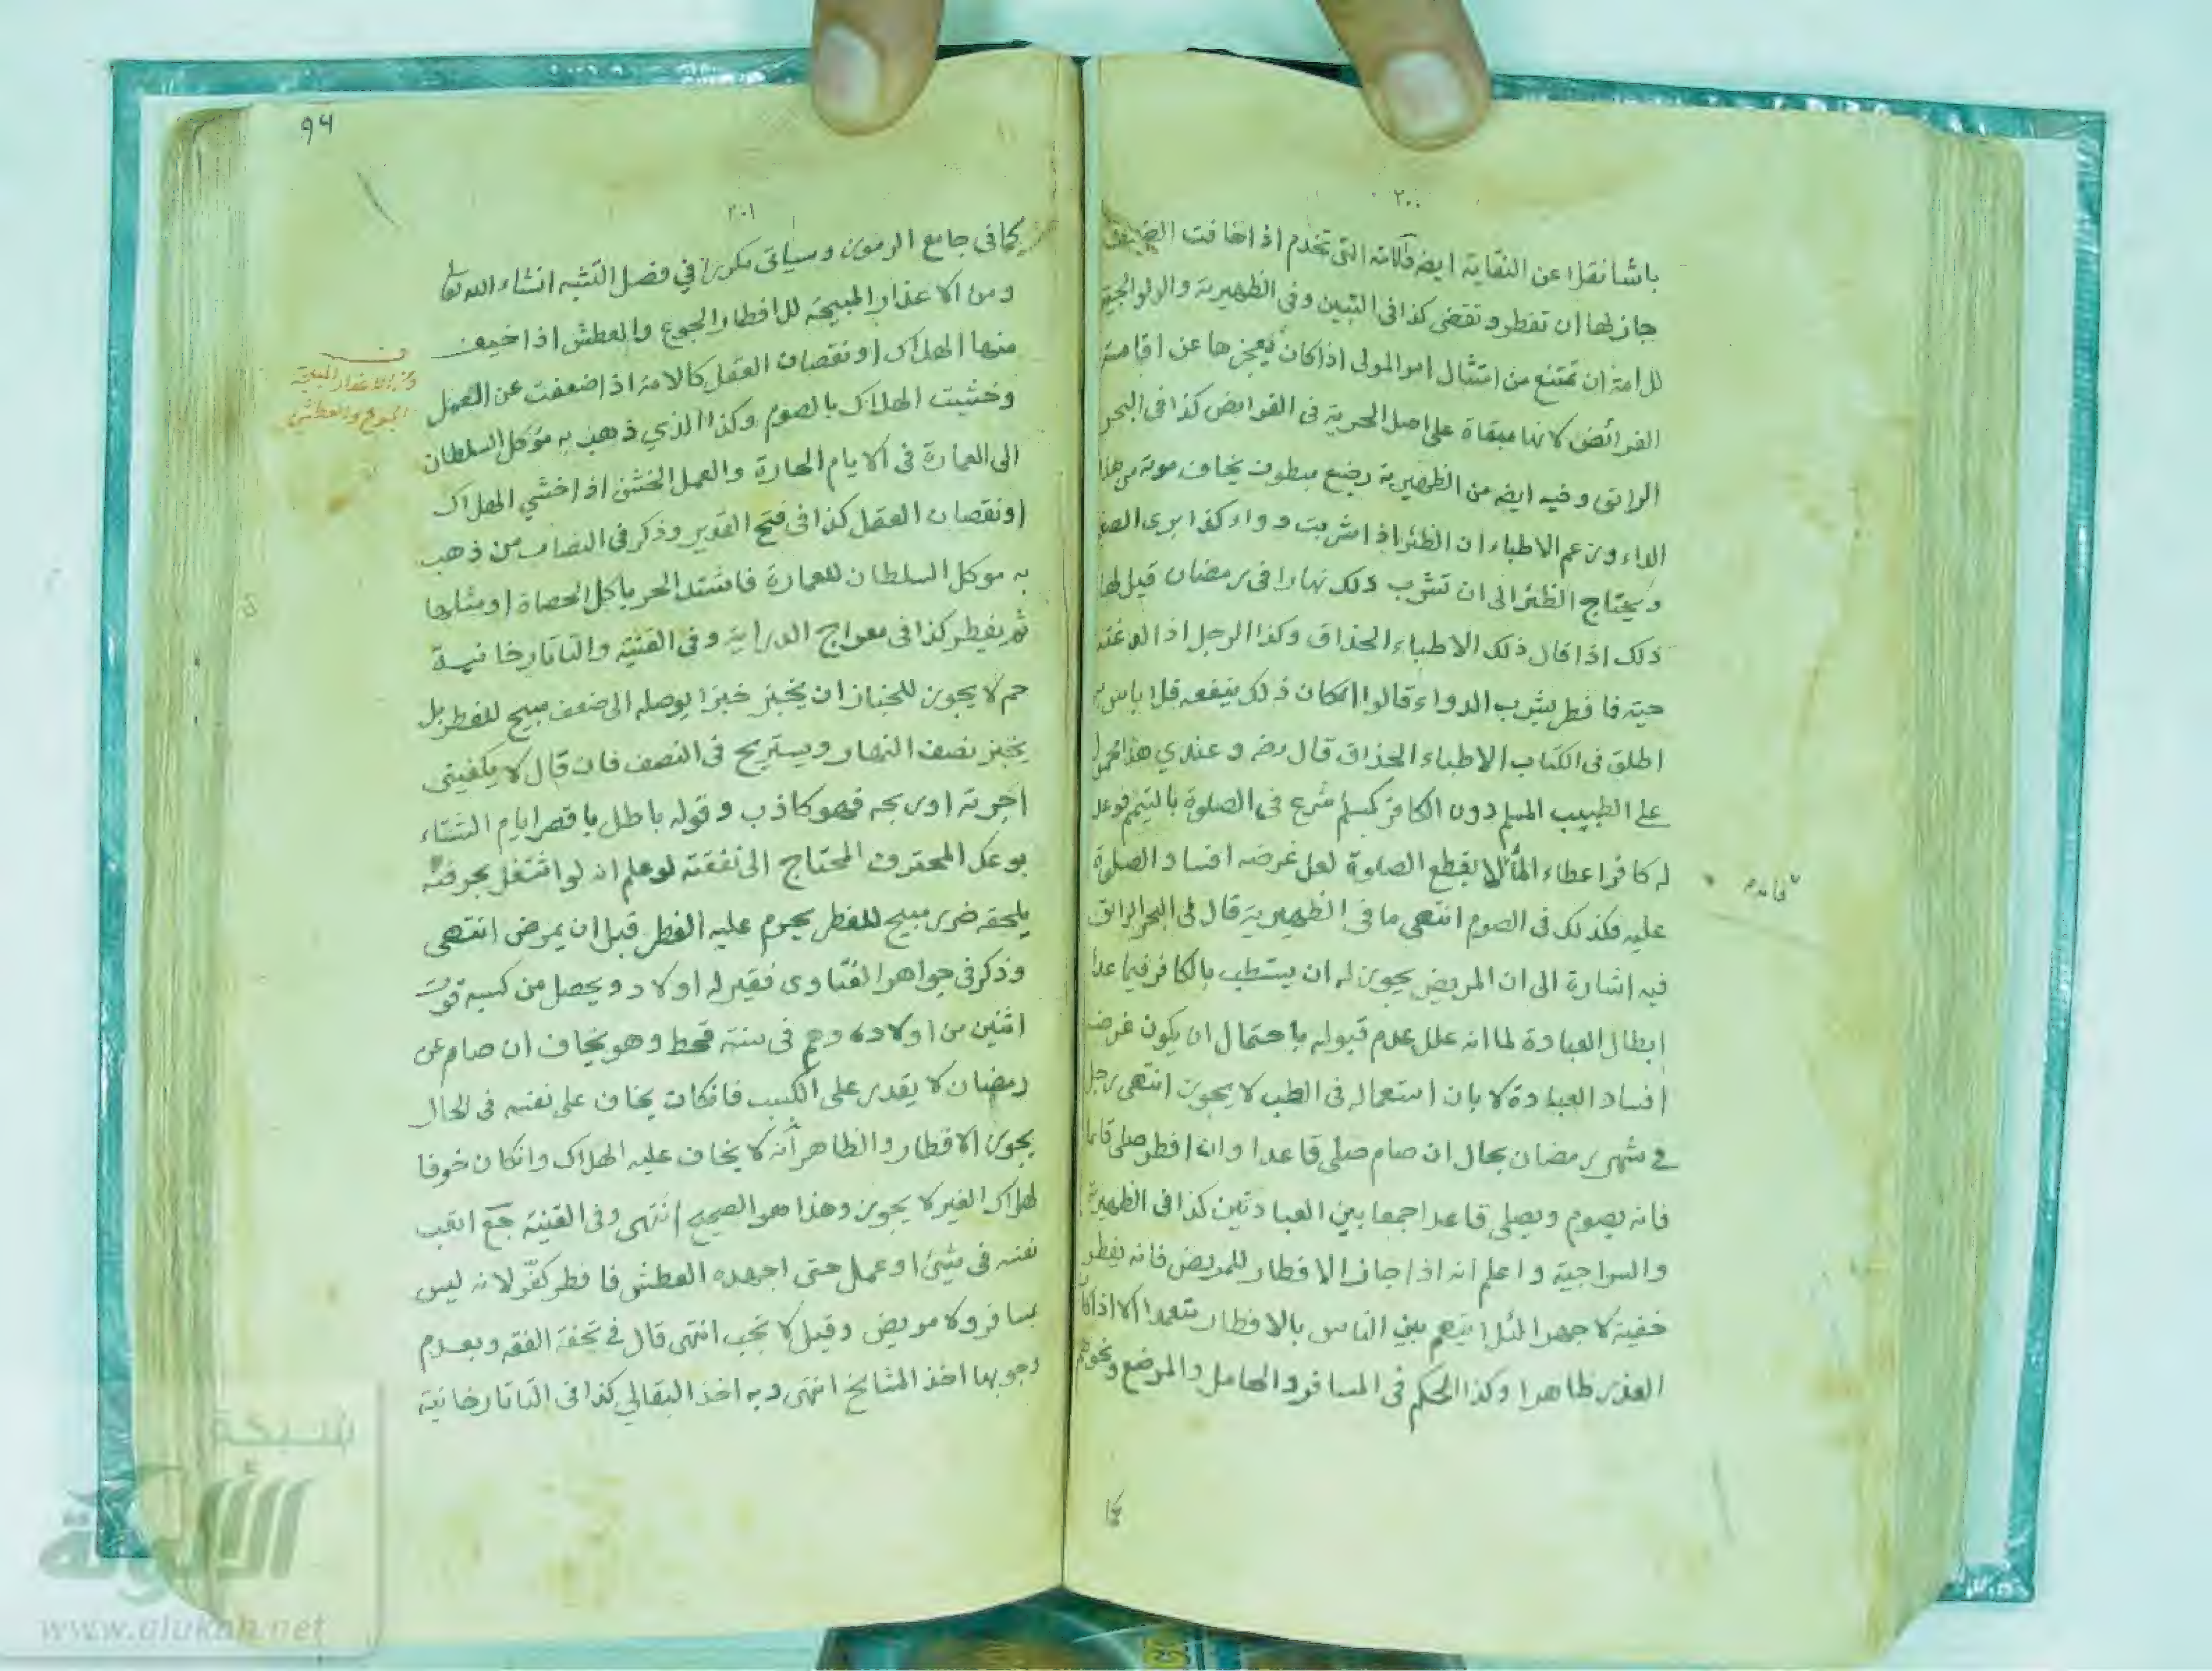 ٢٠٠
باشا نقلا عن النقاية ايضه فالامة التى تخدم اذا خافت الضعف
جاز لها ان تفطر وتقضى كذا فى التبين وفى الظهيرية والولوالجية
للامة ان تمتنع من امتثال امر المولى اذا كان يعجزها عن اقامة
الفرائض لانها مبقاة على اصل الحرية فى الفرايض كذا فى البحر
الرائق وفيه ايضه من الظهيرية رضيع مبطون يخاف موته من هذا
الداء وزعم الاطباء ان الظئر اذا شربت دواء كذا برئ الصغير
ويحتاج الظئر الى ان تشرب ذلك نهارا فى رمضان قيل لها
ذلك اذا قال ذلك الاطباء الحذاق وكذا الرجل اذا لدغته
حية فافطر بشرب الدواء قالوا انكان ذلك ينفعه فلا باس به
اطلق فى الكتاب الاطباء الحذاق قال رضه وعندي هذا محمول
على الطبيب المسلم دون الكافر كمسلم شرع فى الصلوة بالتيمم فوعد
له كافر اعطاء الماء لا يقطع الصلوة لعل غرضه افساد الصلوة
عليه فكذلك فى الصوم انتهى ما فى الظهيرية قال فى البحر الرائق
فيه اشارة الى ان المريض يجوز له ان يستطب بالكافر فيما عدا
ابطال العبادة لما انه علل عدم قبوله باحتمال ان يكون غرضه
افساد العبادة لا بان استعماله فى الطب لا يجوز انتهى رجل
فى شهر رمضان بحال ان صام صلى قاعدا وان افطر صلى قائما
فانه يصوم ويصلى قاعدا جمعا بين العبادتين كذا فى الظهيرية
والسراجية واعلم انه اذا جاز الافطار للمريض فانه يفطر
خفية لا جهرا لئلا يتهم بين الناس بالافطار متعمدا الا اذا كان
العذر ظاهرا وكذا الحكم فى المسافر والحامل والمرضع ونحوهم
كما
فائدة
٩٤
٢٠١
كما فى جامع الرموز وسياتى مكررا في فصل التشبه انشاء الله تعالى
ومن الاعذار المبيحة للافطار الجوع والعطش اذا خيف
منها الهلاك او نقصان العقل كالامة اذا ضعفت عن العمل
وخشيت الهلاك بالصوم وكذا الذي ذهب به موكل السلطان
الى العمارة فى الايام الحارة والعمل الخشن اذا خشي الهلاك
او نقصان العقل كذا فى فتح القدير وذكر فى النصاب من ذهب
به موكل السلطان للعمارة فاشتد الحر ياكل الحصاة او مثلها
ثم يفطر كذا فى معراج الدراية وفى القنية والتاتارخانية
حم لا يجوز للخباز ان يخبز خبزا يوصله الى ضعف مبيح للفطر بل
يخبز نصف النهار ويستريح فى النصف فان قال لا يكفينى
اجرته او ربحه فهو كاذب وقوله باطل باقصر ايام الشتاء
المحترف المحتاج الى نفقته لو علم انه لو اشتغل بحرفته
يلحقه ضرر مبيح للفطر يحرم عليه الفطر قبل ان يمرض انتهى
وذكر فى جواهر الفتاوى فقير له اولاد ويحصل من كسبه قوت
اثنين من اولاده وهم فى سنة قحط وهو يخاف ان صام عن
رمضان لا يقدر على الكسب فانكان يخاف على نفسه فى الحال
يجوز الافطار والظاهر أنه لا يخاف عليه الهلاك وانكان خوفا
لهلاك الغير لا يجوز وهذا هو الصحيح انتهى وفى القنية جع اتعب
نفسه فى شيئ او عمل حتى اجهده العطش فافطر كفّر لانه ليس
بمسافر ولا مريض وقيل لا تجب انتهى قال فى تحفة الفقه وبعدم
وجوبها اخذ المشايخ انتهى وبه اخذ البقالي كذا فى التاتارخانية
ومن الاعذار المبيحة
الجوع والعطش
شبكة
الألوكة
www.alukah.net